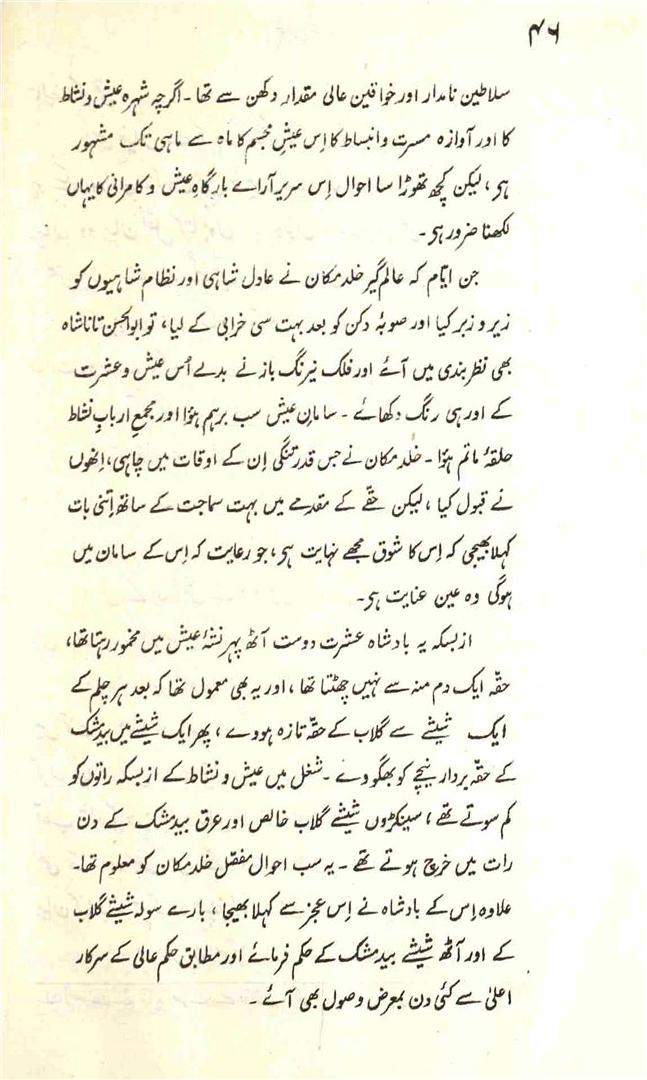 ۴۶
سلاطین نامدار اور خواقین عالی مقدار دکھن سے تھا ۔ اگرچہ شہرہ عیش و نشاط
کا اور آوازہ مسرت و انبساط کا اِس عیشِ مجسم کا ماہ سے ماہی تک مشہور
ہی ، لیکن کچھ تھوڑا سا احوال اِس سریر آراے بارگاہِ عیش و کامرانی کا یہاں
لکھنا ضرور ہی ۔
جن ایّام کہ عالم گیر خلد مکان نے عادل شاہی اور نظام شاہیوں کو
زیر و زبر کیا اور صوبۂ دکن کو بعد بہت سی خرابی کے لیا ، تو ابوالحسن تانا شاہ
بھی نظر بندی میں آئے اور فلک نیرنگ باز نے بدلے اُس عیش و عشرت
کے اور ہی رنگ دکھائے ۔ سامانِ عیش سب برہم ہؤا اور مجمعِ اربابِ نشاط
حلقۂ ماتم ہؤا ۔ خلد مکان نے جس قدر تنگی اِن کے اوقات میں چاہی ، اِنھوں
نے قبول کیا ، لیکن حقّے کے مقدمے میں بہت سماجت کے ساتھ اِتنی بات
کہلا بھیجی کہ اِس کا شوق مجھے نہایت ہی ، جو رعایت کہ اِس کے سامان میں
ہوگی وہ عین عنایت ہی ۔
ازبسکہ یہ بادشاہ عشرت دوست آٹھ پہر نشۂ عیش میں مخمور رہتا تھا ،
حقّہ ایک دم منہ سے نہیں چھٹتا تھا ، اور یہ بھی معمول تھا کہ بعد ہر چلم کے
ایک شیشے سے گلاب کے حقّہ تازہ ہووے ، پھر ایک شیشے میں بید مشک
کے حقّہ بردار نیچے کو بھگو دے ۔ شغل میں عیش و نشاط کے ازبسکہ راتوں کو
کم سوتے تھے ، سینکڑوں شیشے گلاب خالص اور عرق بید مشک کے دن
رات میں خرچ ہوتے تھے ۔ یہ سب احوال مفصّل خلد مکان کو معلوم تھا ۔
علاوہ اِس کے بادشاہ نے اِس عجز سے کہلا بھیجا ، بارے سولہ شیشے گلاب
کے اور آٹھ شیشے بید مشک کے حکم فرمائے اور مطابق حکم عالی کے سرکار
اعلیٰ سے کئی دن بمعرض وصول بھی آئے ۔